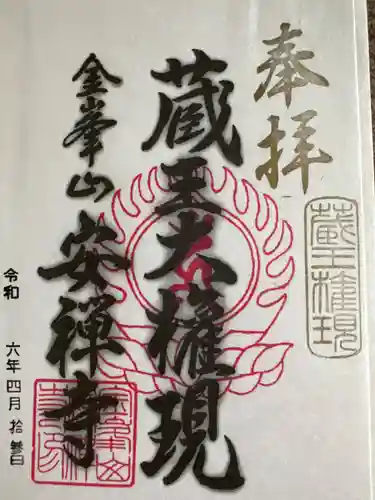 奉拝
蔵王権現
蔵王大権現
金峯山
安禅寺
令和 六年四月 拾参日